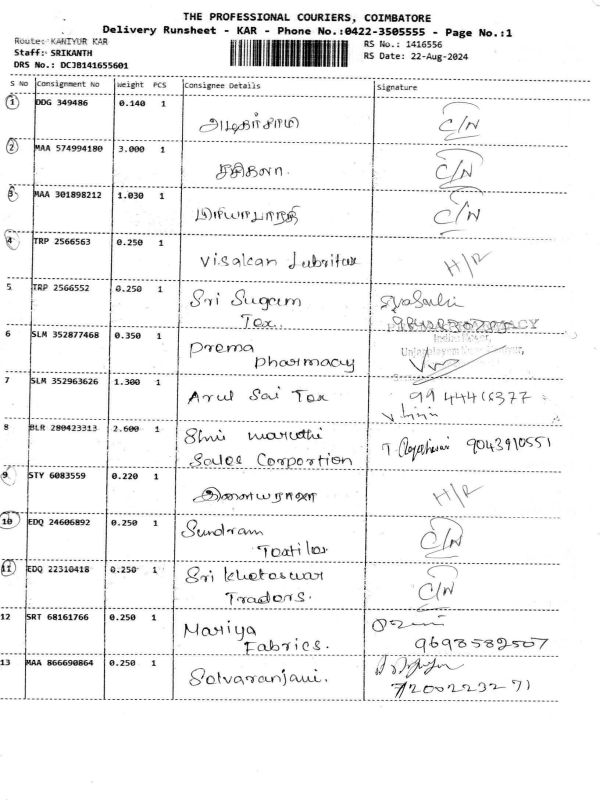 THE PROFESSIONAL COURIERS, COIMBATORE
Delivery Runsheet - KAR - Phone No.:0422-3505555 - Page No.:1
Route: KANIYUR KAR
RS No.: 1416556
Staff: SRIKANTH
RS Date: 22-Aug-2024
DRS No.: DCJB141655601
S No Consignment No Weight PCS Consignee Details Signature
1 DDG 349486 0.140 1
C/N
2 MAA 574994180 3.000 1
சசிகலா. C/N
3 MAA 301898212 1.030 1
C/N
4 TRP 2566563 0.250 1
Visalcan H/R
5 TRP 2566552 0.250 1
Sri Sugam
Tex.
6 SLM 352877468 0.350 1
Prema
Pharmacy
7 SLM 352963626 1.300 1
Arul Sai Tex
8 BLR 280423313 2.600 1
Shri maruthi 9043910551
Sales Corportion
9 STY 6083559 0.220 1
இளையராஜா H/R
10 EDQ 24606892 0.250 1
Sundram C/N
Textiles
11 EDQ 22310418 0.250 1
Sri C/N
Traders.
12 SRT 68161766 0.250 1
Mariya
Fabrics. 9698582507
13 MAA 866690864 0.250 1
Selvaranjani.
7200223271